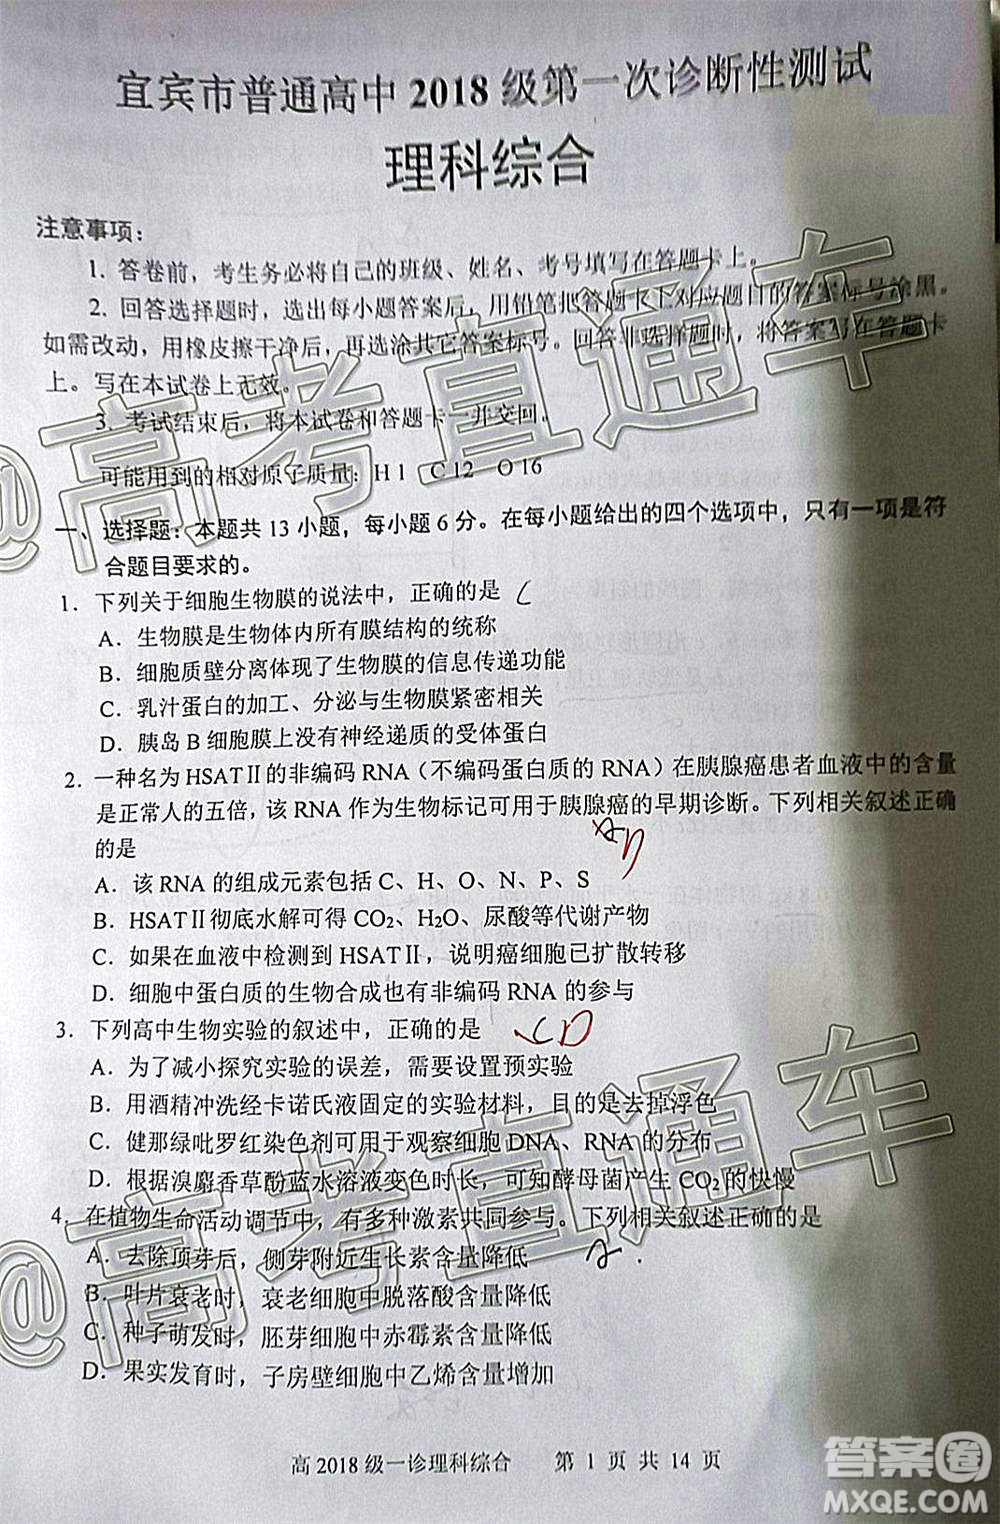 宜宾市普通高中 2018 级第一次诊断性测试
理科综合
注意事项：
1. 答卷前，考生务必将自己的班级、姓名、考号填写在答题卡上。
2. 回答选择题时，选出每小题答案后，用铅笔把答题卡上对应题目的答案标号涂黑。
如需改动，用橡皮擦干净后，再选涂其它答案标号。回答非选择题时，将答案写在答题卡
上。写在本试卷上无效。
3. 考试结束后，将本试卷和答题卡一并交回。
可能用到的相对原子质量：H 1 C 12 O 16
一、选择题：本题共 13 小题，每小题 6 分。在每小题给出的四个选项中，只有一项是符
合题目要求的。
1. 下列关于细胞生物膜的说法中，正确的是 C
A．生物膜是生物体内所有膜结构的统称
B．细胞质壁分离体现了生物膜的信息传递功能
C．乳汁蛋白的加工、分泌与生物膜紧密相关
D．胰岛 B 细胞膜上没有神经递质的受体蛋白
2. 一种名为 HSATⅡ的非编码 RNA（不编码蛋白质的 RNA）在胰腺癌患者血液中的含量
是正常人的五倍，该 RNA 作为生物标记可用于胰腺癌的早期诊断。下列相关叙述正确
的是
A．该 RNA 的组成元素包括 C、H、O、N、P、S
B．HSATⅡ彻底水解可得 CO₂、H₂O、尿酸等代谢产物
C．如果在血液中检测到 HSATⅡ，说明癌细胞已扩散转移
D．细胞中蛋白质的生物合成也有非编码 RNA 的参与
3. 下列高中生物实验的叙述中，正确的是 CD
A．为了减小探究实验的误差，需要设置预实验
B．用酒精冲洗经卡诺氏液固定的实验材料，目的是去掉浮色
C．健那绿吡罗红染色剂可用于观察细胞 DNA、RNA 的分布
D．根据溴麝香草酚蓝水溶液变色时长，可知酵母菌产生 CO₂的快慢
4. 在植物生命活动调节中，有多种激素共同参与。下列相关叙述正确的是
A．去除顶芽后，侧芽附近生长素含量降低
B．叶片衰老时，衰老细胞中脱落酸含量降低
C．种子萌发时，胚芽细胞中赤霉素含量降低
D．果实发育时，子房壁细胞中乙烯含量增加
高 2018 级一诊理科综合 第 1 页 共 14 页
@高考直通车
@高考直通车
答案圈
MXQE.COM